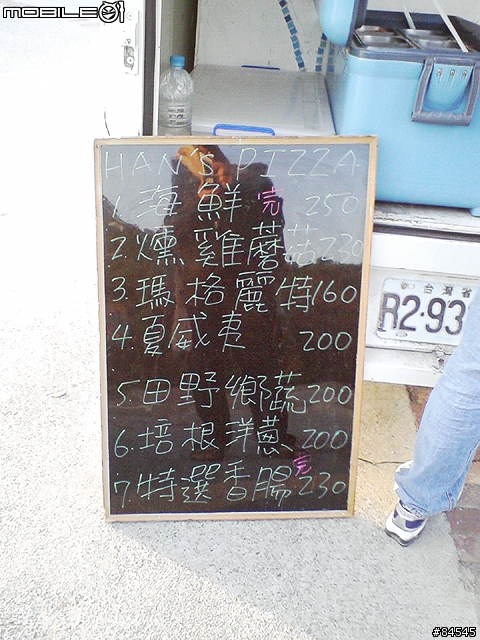 MOBILE01
HAN'S PIZZA
1. 海鮮 完 250
2. 燻雞蘑菇 230
3. 瑪格麗特 160
4. 夏威夷 200
5. 田野鄉蔬 200
6. 培根洋蔥 200
7. 特選香腸 完 230
台灣省
R2-93
#84545